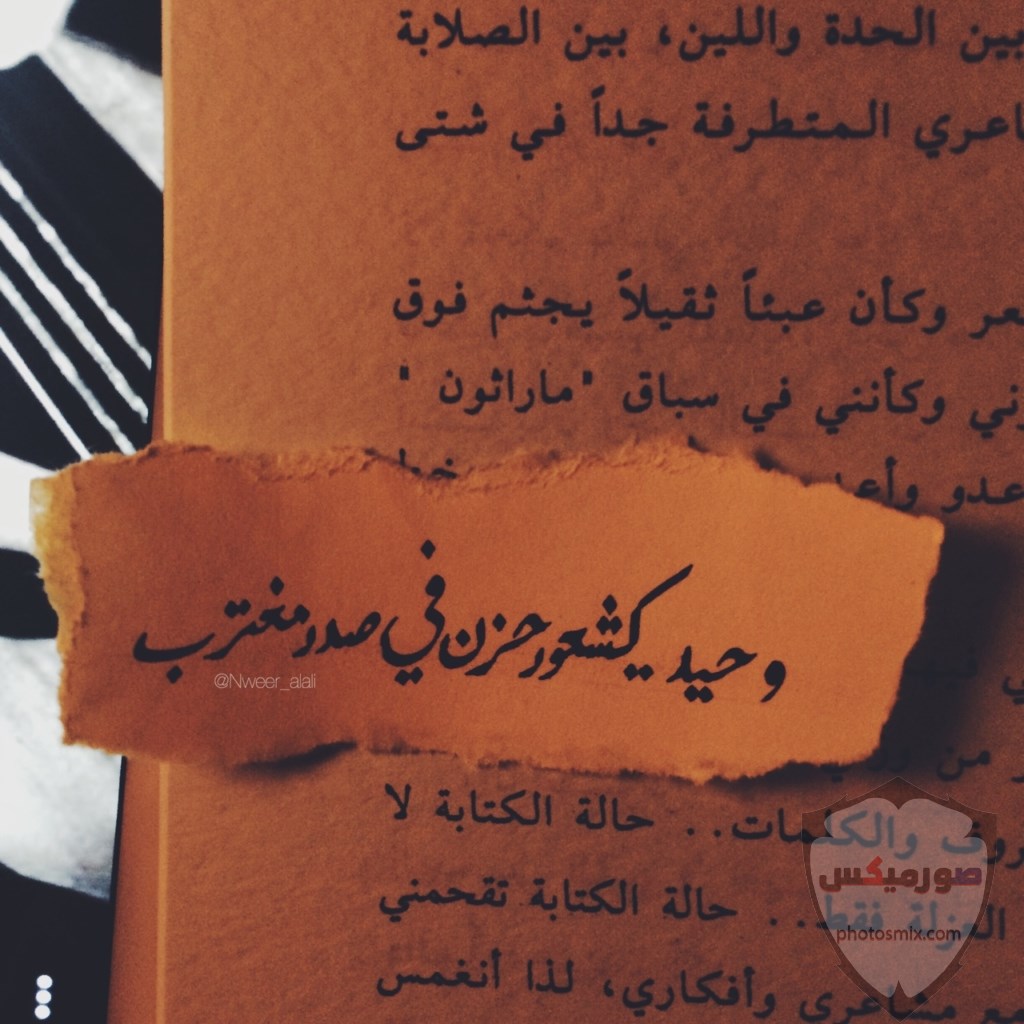 بين الحدة واللين، بين الصلابة
المتطرفة جداً في شتى
وكأن عبئاً ثقيلاً يجثم فوق
وكأنني في سباق "ماراثون"
وحيد كشعور حزن في صدر مغترب
@Nweer_alali
من
والكلمات.. حالة الكتابة لا
العزلة فقط... حالة الكتابة تقحمني
مشاعري وأفكاري، لذا أنغمس
صورميكس
photosmix.com